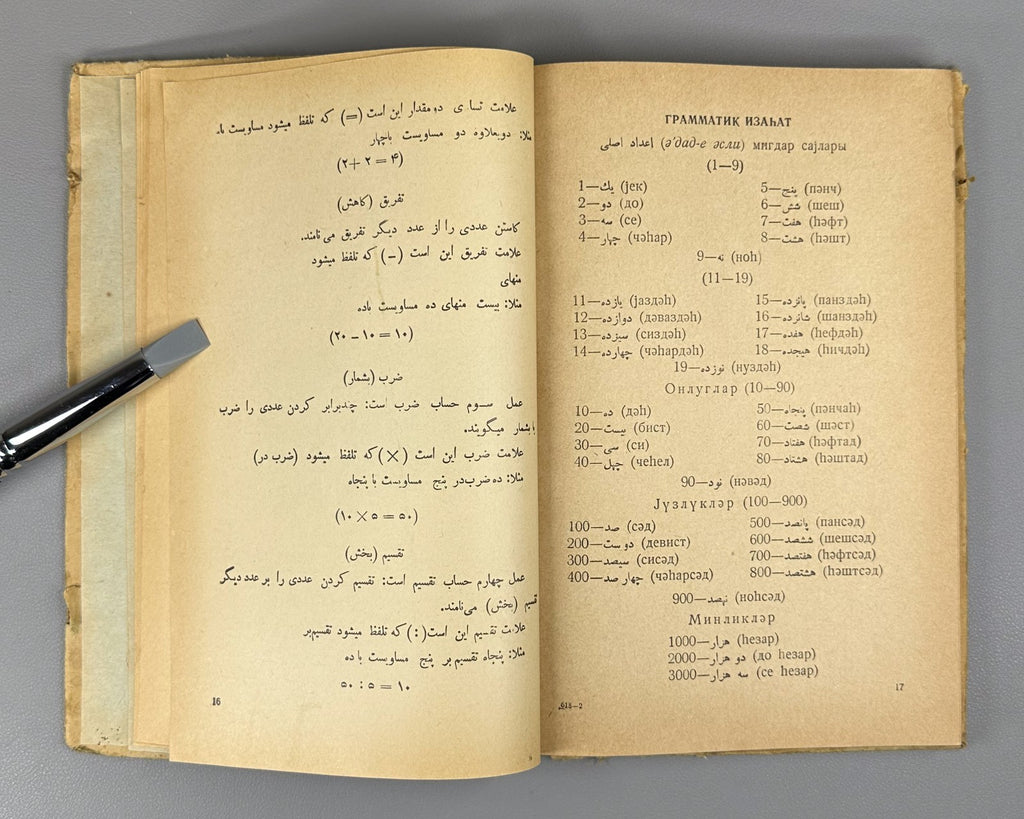 علامت تسا ی دو مقدار این است (=) که تلفظ میشود مساویست با.
مثلا: دو بعلاوه دو مساویست باچهار
(۲+۲ = ۴)
تفریق (کاهش)
کاستن عددی را از عدد دیگر تفریق می نامند.
علامت تفریق این است (–) که تلفظ میشود
منهای
مثلا: بیست منهای ده مساویست باده
(۲۰ – ۱۰ = ۱۰)
ضرب (بشمار)
عمل سوم حساب ضرب است: چندبرابر کردن عددی را ضرب
یا بشمار میگویند.
علامت ضرب این است (×) که تلفظ میشود (ضرب در)
مثلا: ده ضرب در پنج مساویست با پنجاه
(۱۰ × ۵ = ۵۰)
تقسیم (بخش)
عمل چهارم حساب تقسیم است: تقسیم کردن عددی را بر عدد دیگر
تقسیم (بخش) می نامند.
علامت تقسیم این است (:) که تلفظ میشود تقسیم بر
مثلا: پنجاه تقسیم بر پنج مساویست با ده
۵۰ : ۵ = ۱۰
16
ГРАММАТИК ИЗАҺАТ
اعداد اصلی (ә'дад-е әсли) мигдар сајлары
(1—9)
1—يك (јек) 5—پنج (пәнч)
2—دو (до) 6—شش (шеш)
3—سه (се) 7—هفت (һәфт)
4—چهار (чәһар) 8—هشت (һәшт)
9—نه (ноһ)
(11—19)
11—یازده (јаздәһ) 15—پانزده (панздәһ)
12—دوازده (дәваздәһ) 16—شانزده (шанздәһ)
13—سیزده (сиздәһ) 17—هفده (һефдәһ)
14—چهارده (чәһардәһ) 18—هیجده (һичдәһ)
19—نوزده (нуздәһ)
Онлуглар (10—90)
10—ده (дәһ) 50—پنجاه (пәнчаһ)
20—بیست (бист) 60—شصت (шәст)
30—سی (си) 70—هفتاد (һәфтад)
40—چهل (чеһел) 80—هشتاد (һәштад)
90—نود (нәвәд)
Јүзлүкләр (100—900)
100—صد (сәд) 500—پانصد (пансәд)
200—دویست (девист) 600—ششصد (шешсәд)
300—سیصد (сисәд) 700—هفتصد (һәфтсәд)
400—چهار صد (чәһарсәд) 800—هشتصد (һәштсәд)
900—نهصد (ноһсәд)
Минликләр
1000—هزار (һезар)
2000—دو هزار (до һезар)
3000—سه هزار (се һезар)
615—2
17